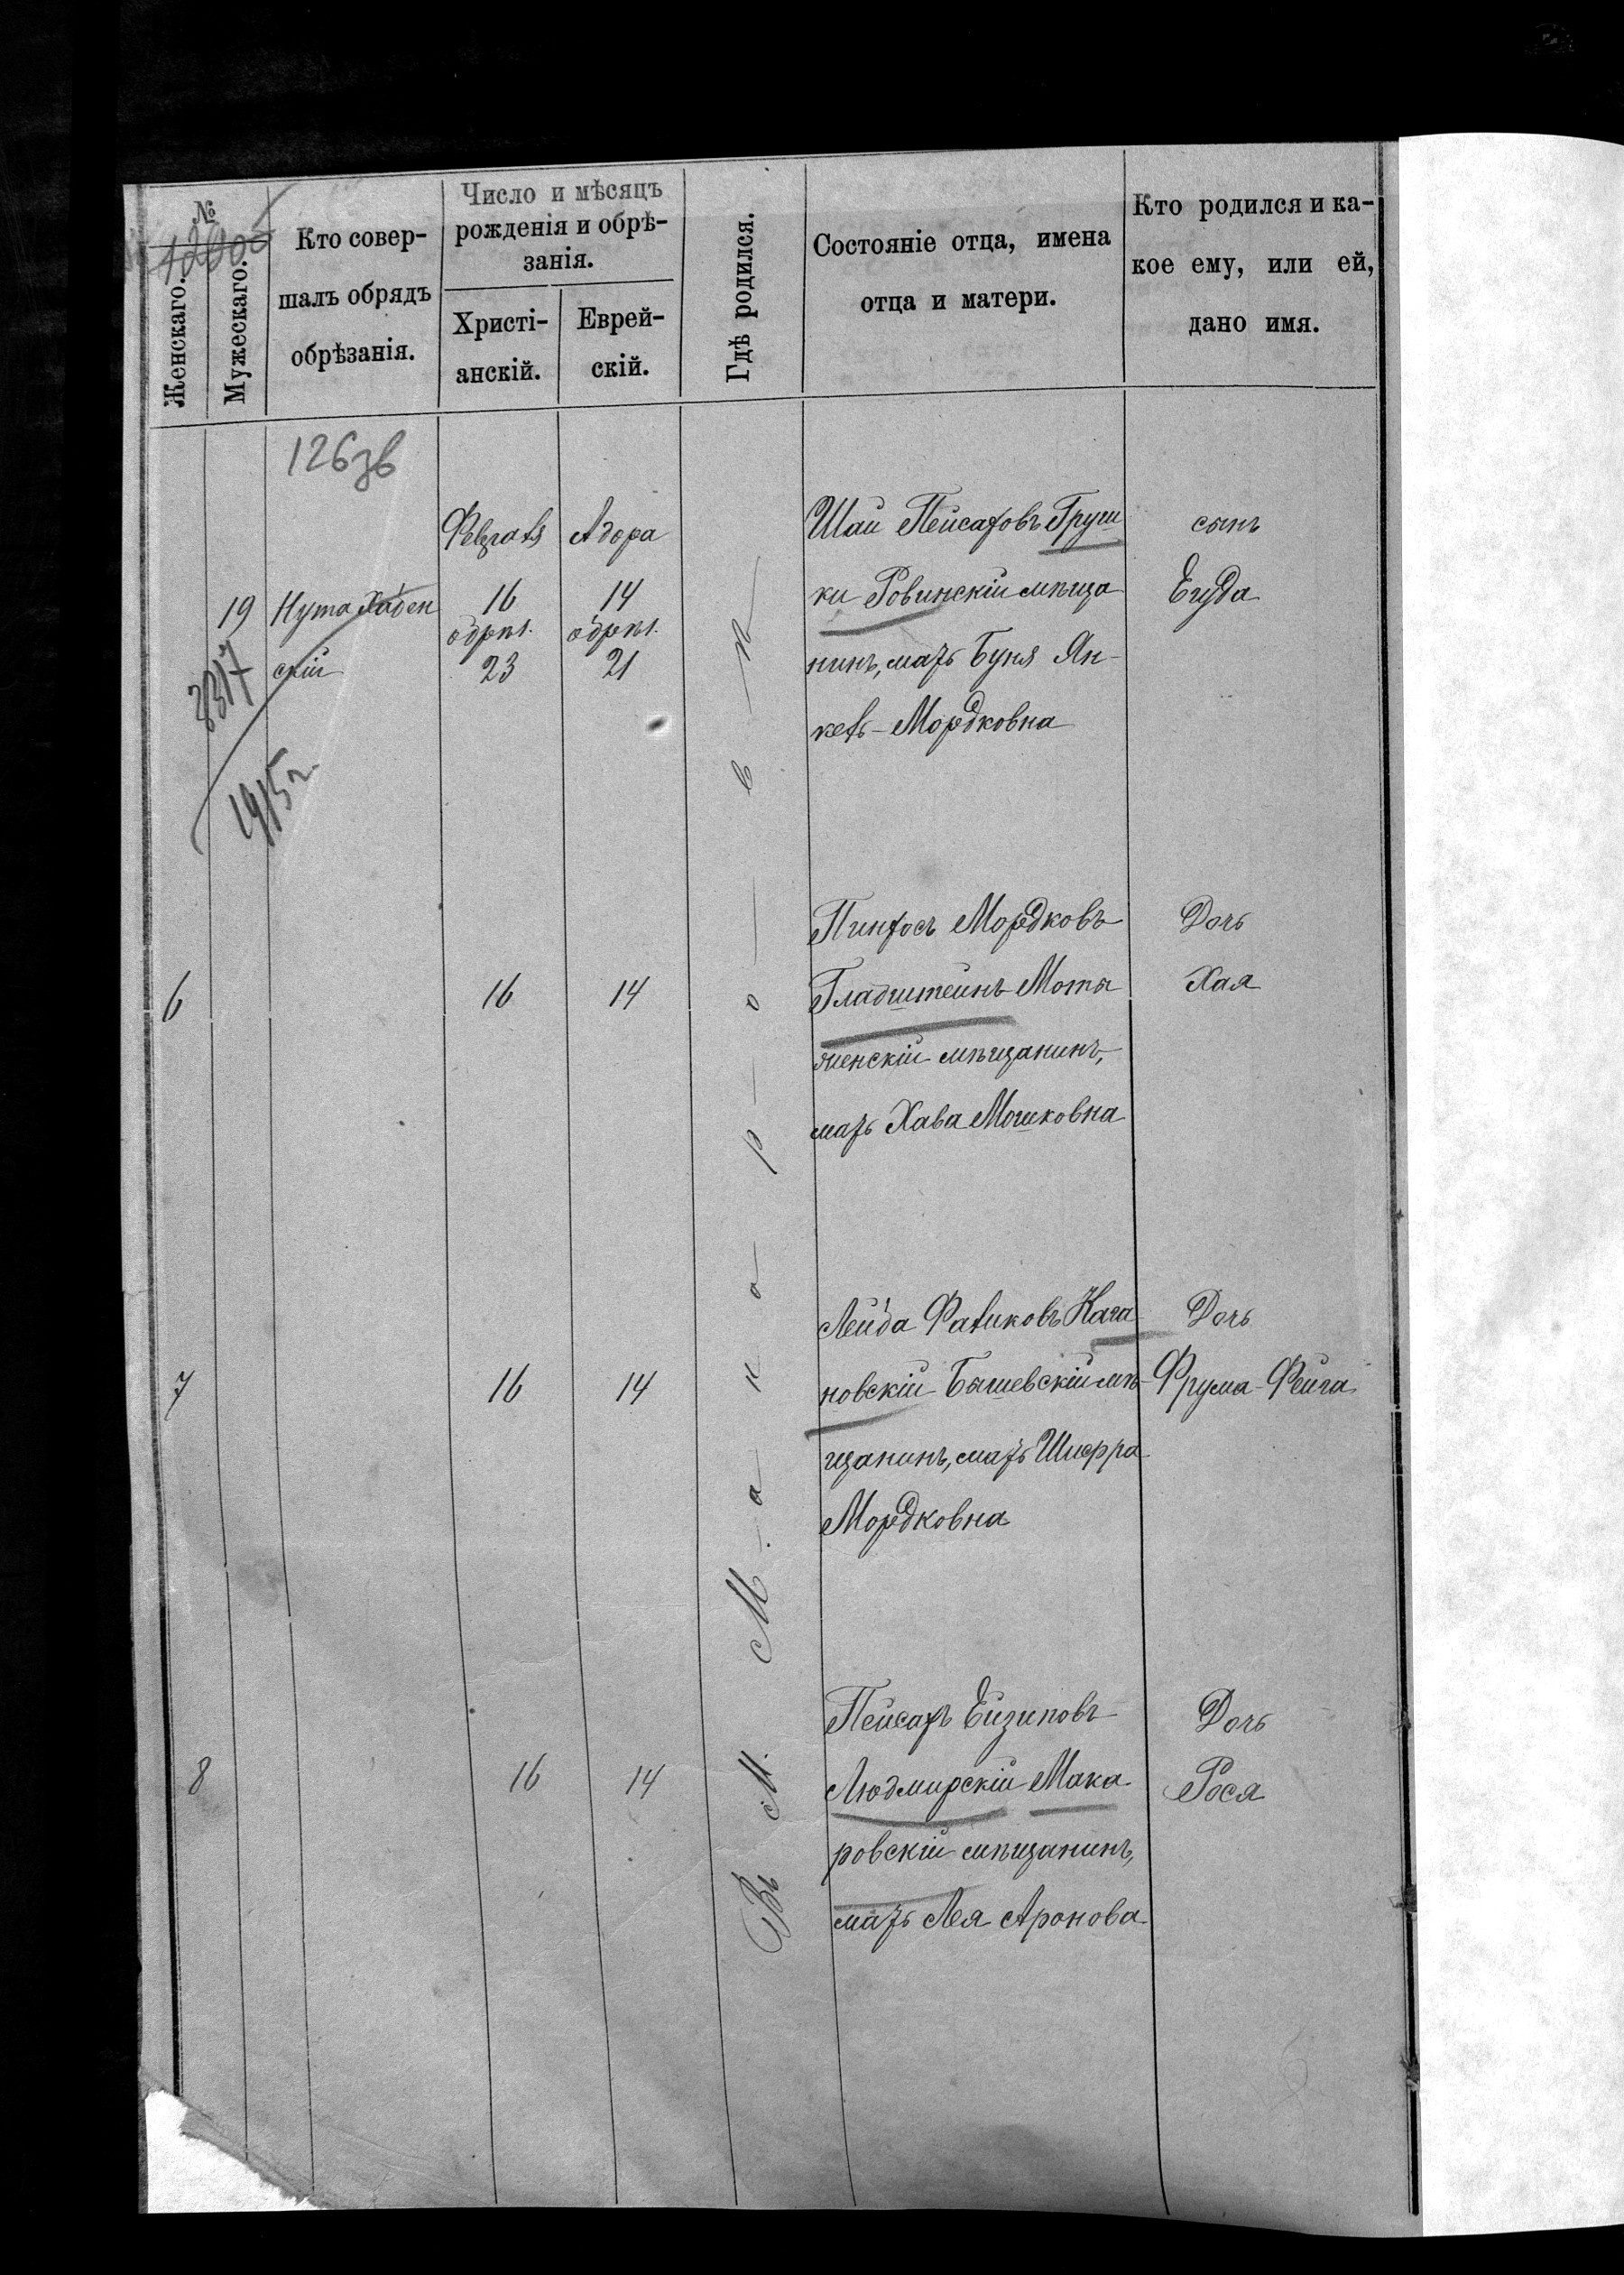 №
Женскаго.
Мужескаго.
Кто совер-
шалъ обрядъ
обрѣзанія.
Число и мѣсяцъ
рожденія и обрѣ-
занія.
Христі-
анскій.
Еврей-
скій.
Гдѣ родился.
Состояніе отца, имена
отца и матери.
Кто родился и ка-
кое ему, или ей,
дано имя.
126зв
Февраль
Адора
19
Нута
скій
16
обрѣз.
23
14
обрѣз.
21
1915 г.
Шаи Пейсаховъ Груш
ки Ровинскій мѣща
нинъ, мать Буня Ян-
кель-Мордковна
сынъ
Еиуда
6
16
14
Пинхосъ Мордковъ
Гладштейнъ Моты
женскій мѣщанинъ,
мать Хава Мошковна
Дочь
Хая
7
16
14
Лейба Файиковъ Кага
новскій Бышевскій мѣ-
щанинъ, мать Шифра
Мордковна
Дочь
Фрума-Фейга
8
16
14
Пейсахъ Ейзиковъ
Людмирскій Мака
ровскій мѣщанинъ,
мать Лея Аронова
Дочь
Рося
Въ М. Макаровѣ